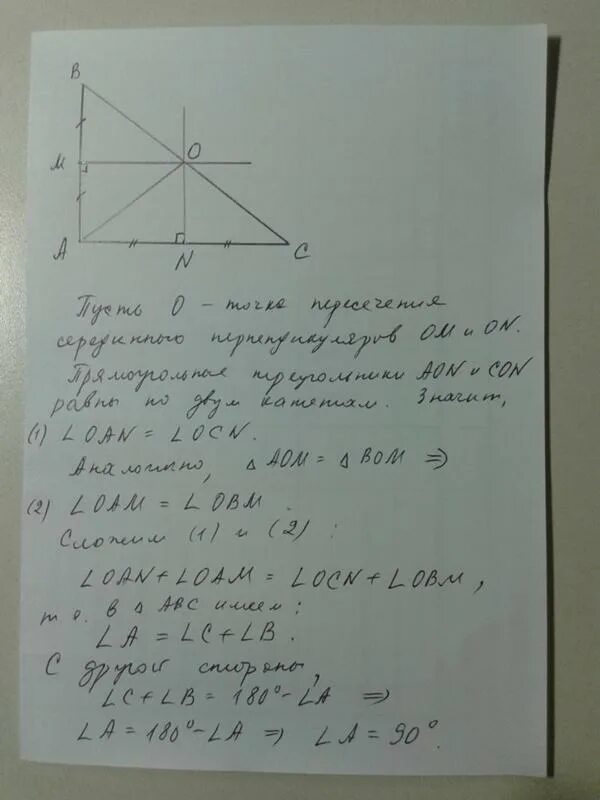 B
M
O
A
N
C
Пусть O – точка пересечения
серединного перпендикуляров OM и ON.
Прямоугольные треугольники AON и CON
равны по двум катетам. Значит,
(1) ∠OAN = ∠OCN.
Аналогично, △AOM = △BOM ⇒
(2) ∠OAM = ∠OBM.
Сложим (1) и (2) :
∠OAN + ∠OAM = ∠OCN + ∠OBM,
т.е. в △ABC имеем:
∠A = ∠C + ∠B.
С другой стороны,
∠C + ∠B = 180° – ∠A ⇒
∠A = 180° – ∠A ⇒ ∠A = 90°.